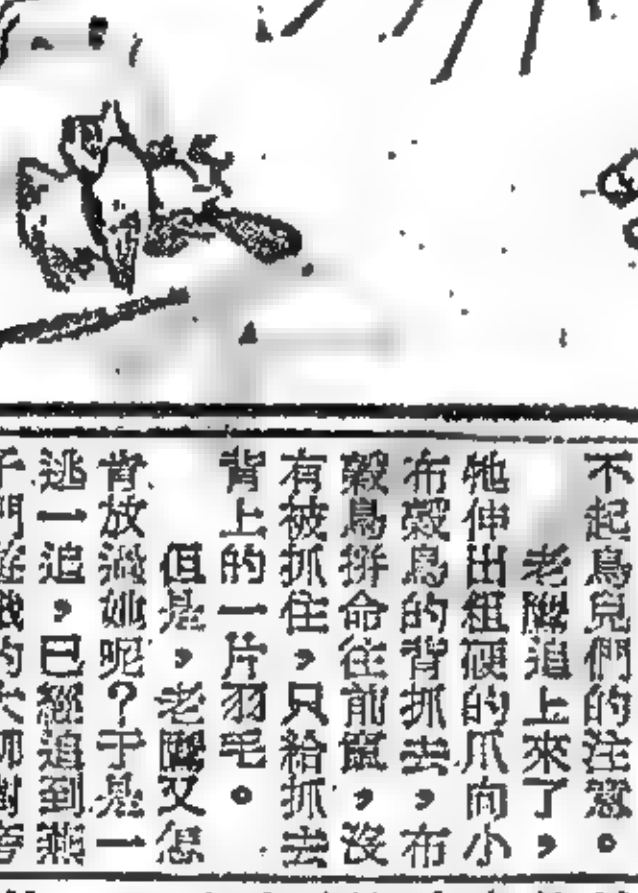 不起鳥兒們的注意。
老鷹追上來了，
牠伸出粗硬的爪向小
布穀鳥的背抓去，布
穀鳥拼命往前竄，沒
有被抓住，只給抓去
背上的一片羽毛。
但是，老鷹又怎
肯放過她呢？于是一
逃一追，已經追到燕